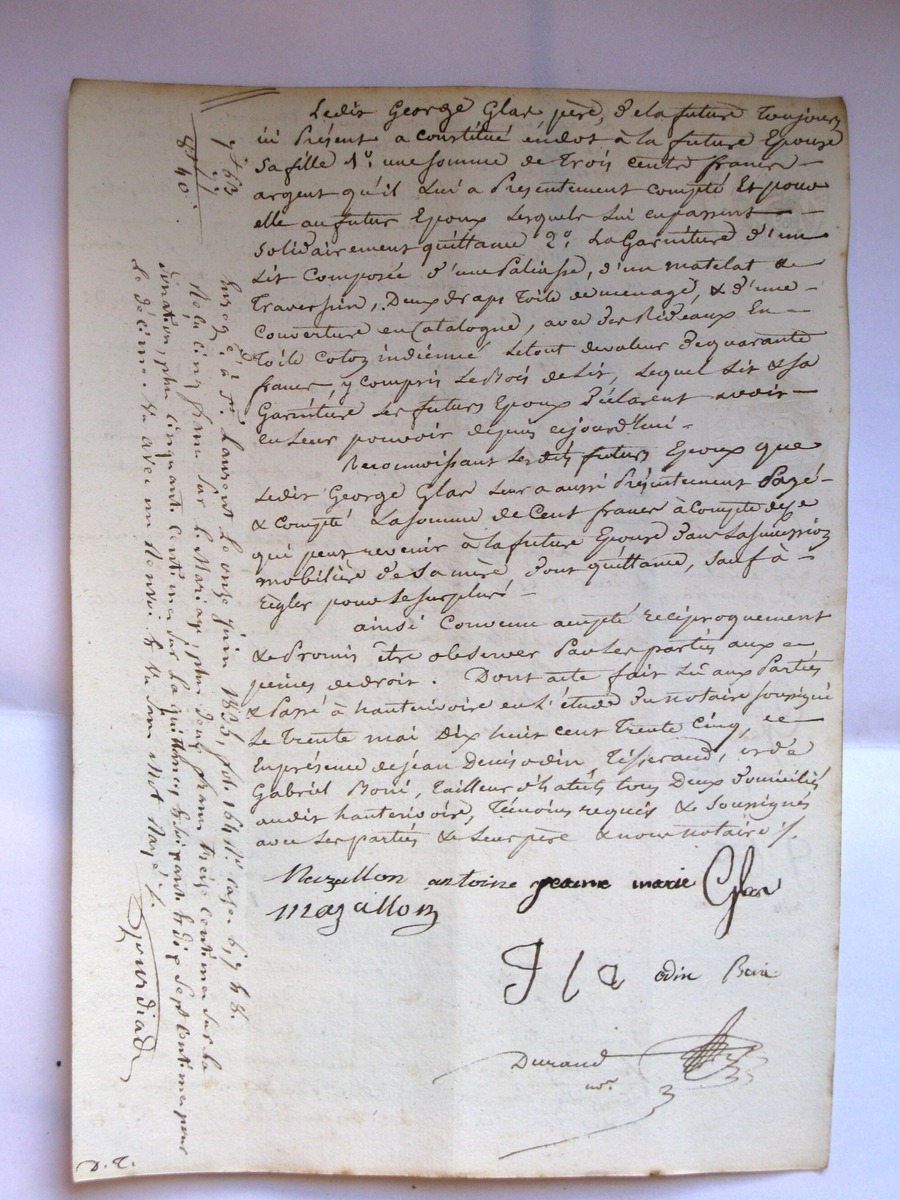 Ledit George Glas père, de la future Toujours
ici Présent a constitué en dot à la future Epouse
Sa fille 1° une somme de Trois cents francs
argent qu'il lui a Présentement compté Et pour
elle au futur Epoux lesquels lui en passent
solidairement quittance 2° La Garniture d'un
Lit Composée d'une Paliasse, d'un matelat &
Traversin, Deux draps Toile de menage, & d'une
Couverture en Catalogne, avec des Rideaux En
Toile Coton indienne Le tout de valeur de quarante
francs y compris Le Bois de Lit, Lequel Lit & sa
Garniture Les futurs Epoux déclarent avoir
en Leur pouvoir depuis cejourd'hui
Reconnoissant Lesdits futurs Epoux que
Ledit George Glas Leur a aussi Présentement Payé
& Compté La somme de Cent francs à compte de ce
qui peut revenir à la future Epouse dans La succession
mobilière de Sa mère dont quittance, sauf à
règler pour Le surplus
ainsi Convenu accepté reciproquement
& Promis être observer Par Les parties aux
peines de droit. Dont acte fait Lû aux Parties
& Passé à hauterivoire en L'étude du notaire soussigné
Le Trente mai Dix huit cent Trente Cinq, en
En présence de jean Denis odin Tisserand, & de
Gabriel Boni, Tailleur d'habits tous Deux domiciliés
audit hauterivoire, Témoins requis & soussignés
avec Les parties & Leur père & nous notaire
Mazallon antoine jeanne marie Glas
Mazallon
odin Boni
Durand
no.re
D. T.
à St. Laurent Le onze juin 1835, fol. 164
Reçu cinq francs sur le Mariage, plus deux francs treize centimes sur la
donation, plus cinquante centimes sur la quittance & cinquante & dix sept centimes pour
le décime.